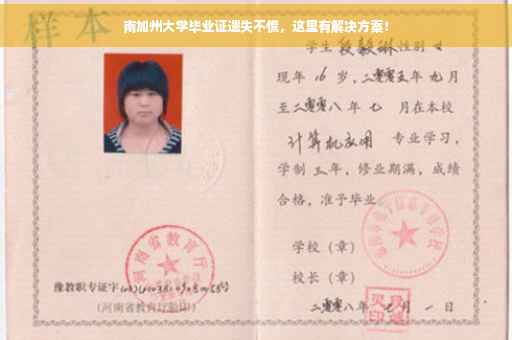 南加州大学毕业证遗失不慌，这里有解决方案！
样本
学生 段毅琳 性别 女
现年 16 岁，二零零五年 九 月
至二零零八 年 七 月在本校
计算机应用 专业学习，
学制 三 年，修业期满，成绩
合格，准予毕业
学校（章）
校长（章）
二零零八年 月 一 日
河南省教育厅
豫教职专证字
(河南省教育厅验印)